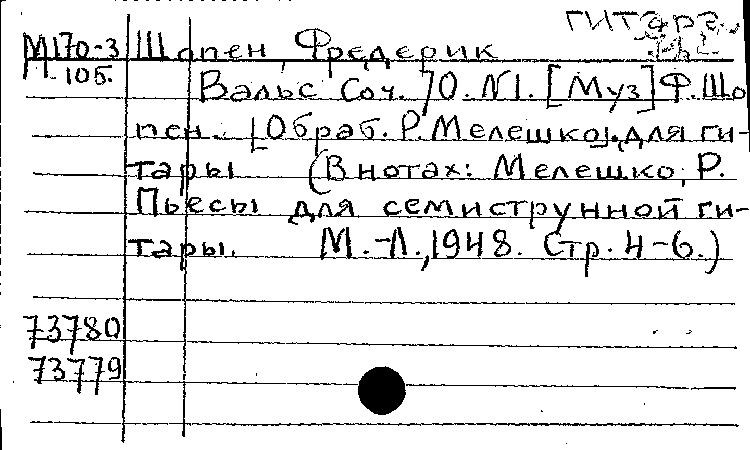 ГИТАРА
М170-3 Шопен, Фредерик
П-105. Вальс Соч. 70. №1. [Муз] Ф. Шо
пен. [Обраб. Р. Мелешко]. для ги-
тары (В нотах: Мелешко, Р.
Пьесы для семиструнной ги-
тары. М.-Л., 1948. Стр. 4-6.)
73780
73779